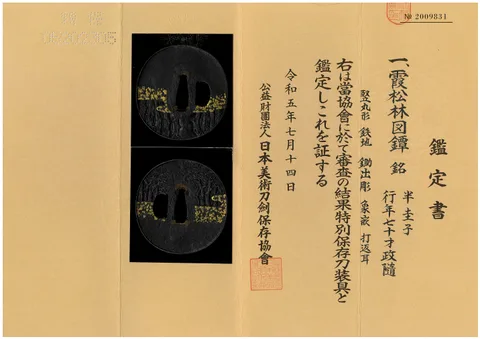 № 2009831
鑑定書
一、霞松林図鐔 銘 半圭子
行年七十才政隨
竪丸形 鉄地 鋤出彫 象嵌 打返耳
右は當協會に於て審査の結果特別保存刀装具と
鑑定しこれを証する
令和五年七月十四日
公益財團法人 日本美術刀劍保存協會